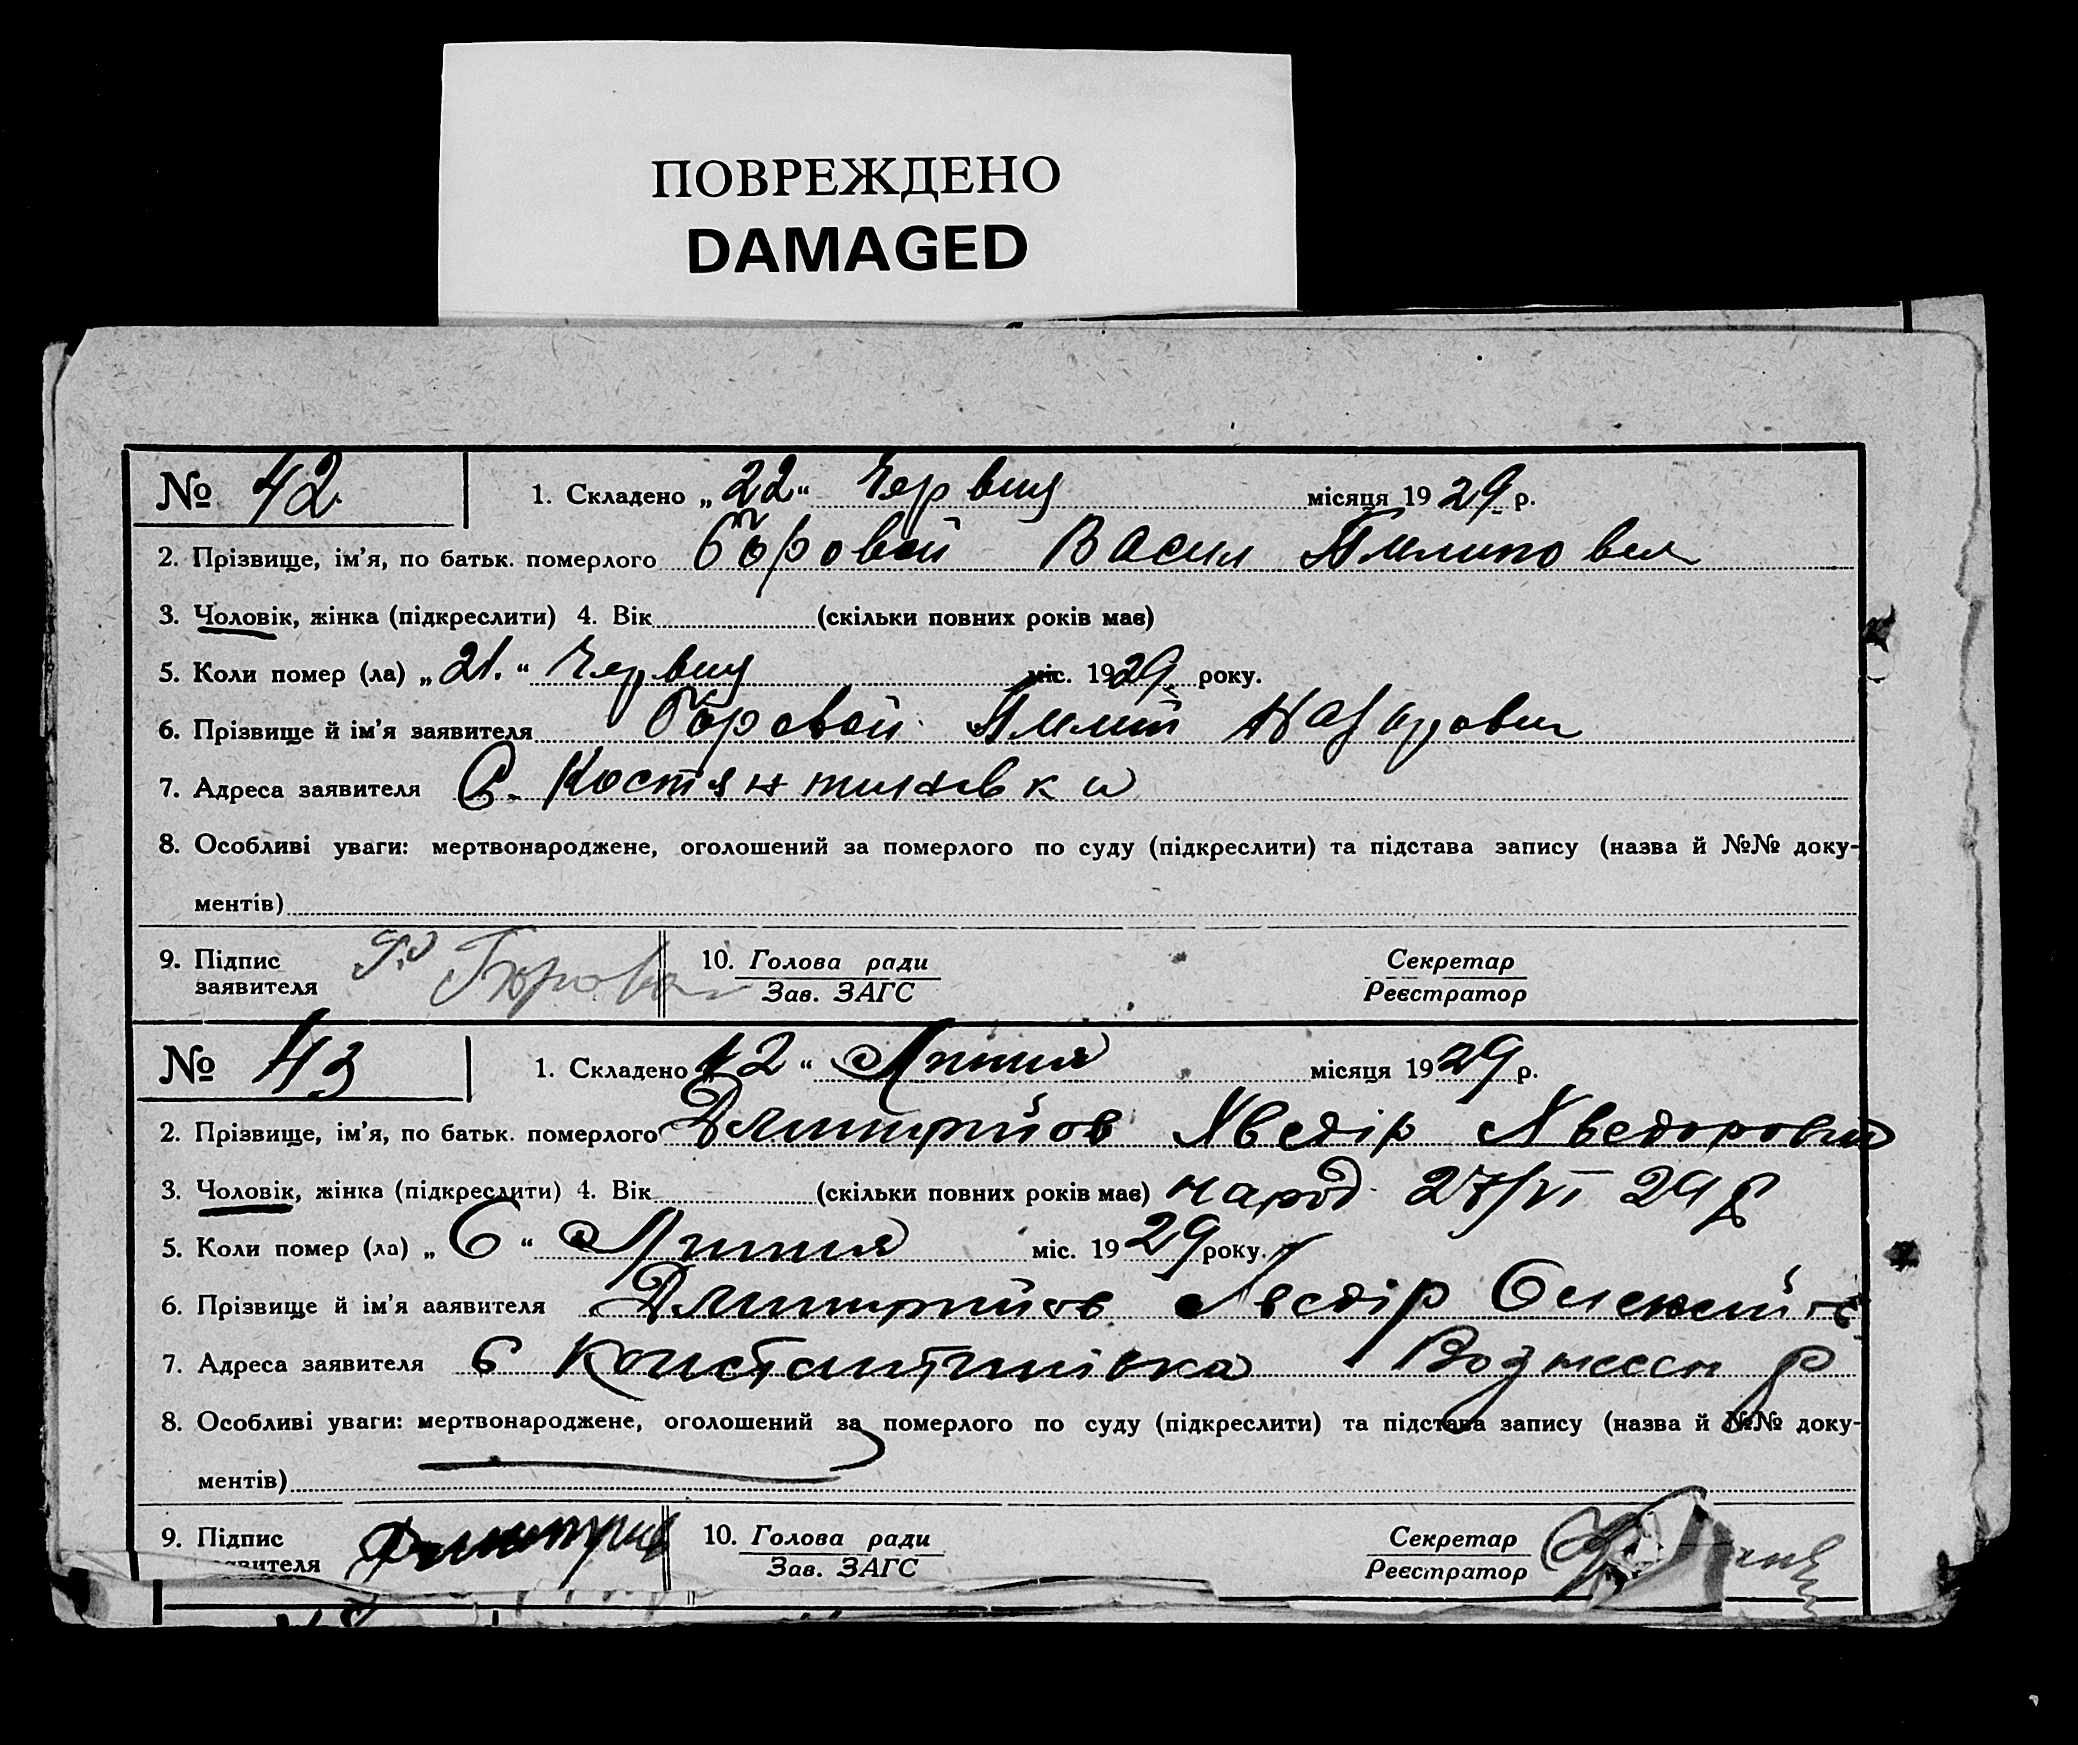 ПОВРЕЖДЕНО
DAMAGED
№ 42 1. Складено „22“ Червця місяця 1929 р.
2. Прізвище, ім'я, по батьк. померлого Боровой Васил Пилипович
3. Чоловік, жінка (підкреслити) 4. Вік (скільки повних років має)
5. Коли помер (ла) „21.“ Червця міс. 1929 року.
6. Прізвище й ім'я заявителя Боровой Пилип
7. Адреса заявителя С. Костянтинівки
8. Особливі уваги: мертвонароджене, оголошений за померлого по суду (підкреслити) та підстава запису (назва й №№ доку-
ментів)
9. Підпис 10. Голова ради Секретар
заявителя Зав. ЗАГС Реєстратор
№ 43 1. Складено 12“ Липня місяця 1929 р.
2. Прізвище, ім'я, по батьк. померлого Дмитрийов Хведір Хведорович
3. Чоловік, жінка (підкреслити) 4. Вік (скільки повних років має) народ 27/VI 29 р
5. Коли помер (ла) „6“ Липня міс. 1929 року.
6. Прізвище й ім'я заявителя Дмитрийов Хведір
7. Адреса заявителя с Константинівка Вознесен р
8. Особливі уваги: мертвонароджене, оголошений за померлого по суду (підкреслити) та підстава запису (назва й №№ доку-
ментів)
9. Підпис 10. Голова ради Секретар
вителя Зав. ЗАГС Реєстратор